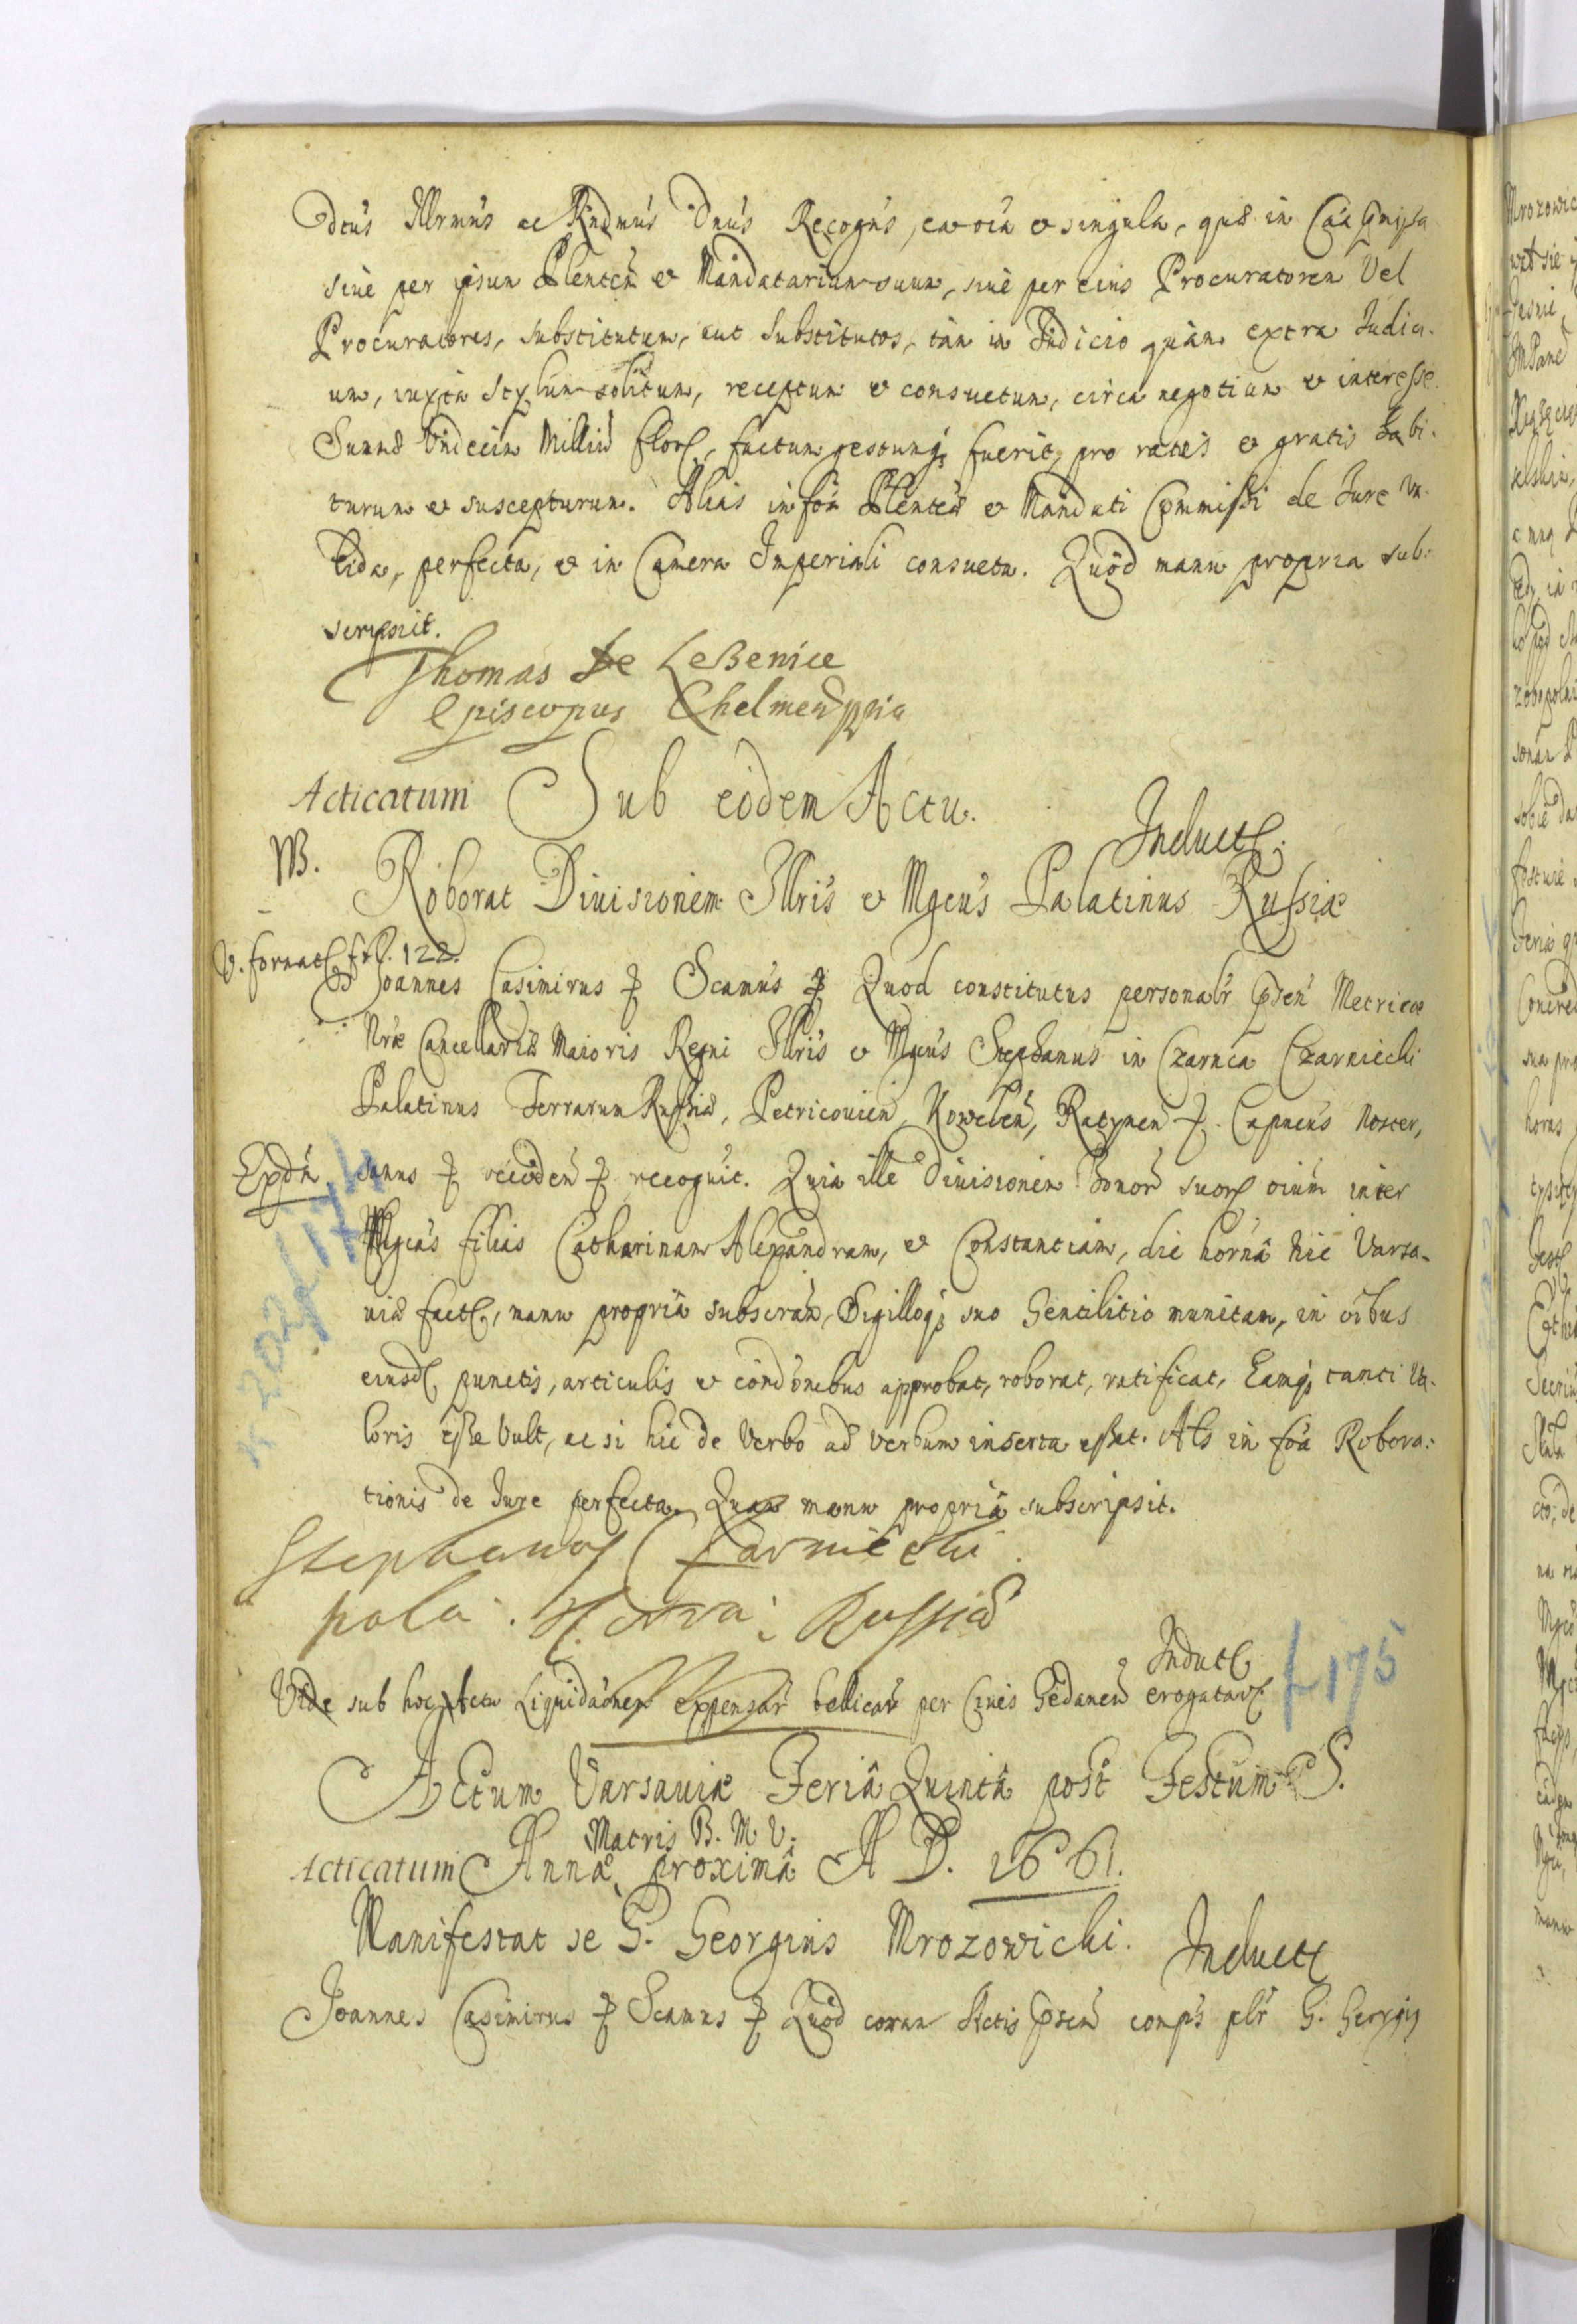 Dctus Illrmus ac Rndmus Dnus Recogns, ea oia et singula, quae in Caa pmissa
siue per ipsum Plenten et Mandatarium suum, siue per eius Procuratorem Vel
Procuratores, substitutum, aut substitutos, tam in Iudicio quam extra Iudici-
um, iuxta stylum solitum, receptum et consuetum, circa negotium et interesse
Summae Vndecim Milliu Flor, factum gestumq; fuerit, pro ratis et gratis habi-
turum et suscepturum. Alias in foa Plenten et Mandati Commissi de Iure va-
lida, perfecta, et in Camera Imperiali consueta. Quod manu propria sub-
scripsit.
Thomas de Leßenice
Episcopus Chelmen
Acticatum Sub eodem Actu.
Induct.
NB.
Roborat Diuisionem Illris et Mgcus Palatinus Russiae
V. format fol. 122.
Joannes Casimirus Scamus Quod constitutus personalr pden Metricae
Nrae Cancellariae Maioris Regni Illris et Mgcus Stephanus in Czarnca Czarniecki
Palatinus Terrarum Russiae, Petricouien, Kowelen, Ratynen Capneus Noster,
Expdn. sanus recoden recognit. Quia ille Diuisionem Bonor suor oium inter
Mgcas filias Catharinam Alexandram, et Constantiam, die horna hic Varsa-
uiae fact, manu propria subscram, Sigilloq; suo Gentilitio munitam, in oibus
eiusd punctis, articulis et condonibus approbat, roborat, ratificat, Eamq; tanti va-
loris esse Vult, ac si hic de Verbo ad verbum inserta esset. Als in foa Robora-
tionis de Iure perfecta. Quam manu propria subscripsit.
Stephanus Czarniecki
pala Russiae
Induct
Vide sub hoc Actu Liquidaonem expensar bellicar per Ciues Gedanen erogatar
f 175
Actum Varsauiae Feria Quinta post Festum S.
Matris B. M. V.
Acticatum Annae proxima A D. 1661.
Manifestat se G. Georgius Mrozowicki. Induct
Joannes Casimirus Scamus Quod coram Actis psen comps plr G. Georgius